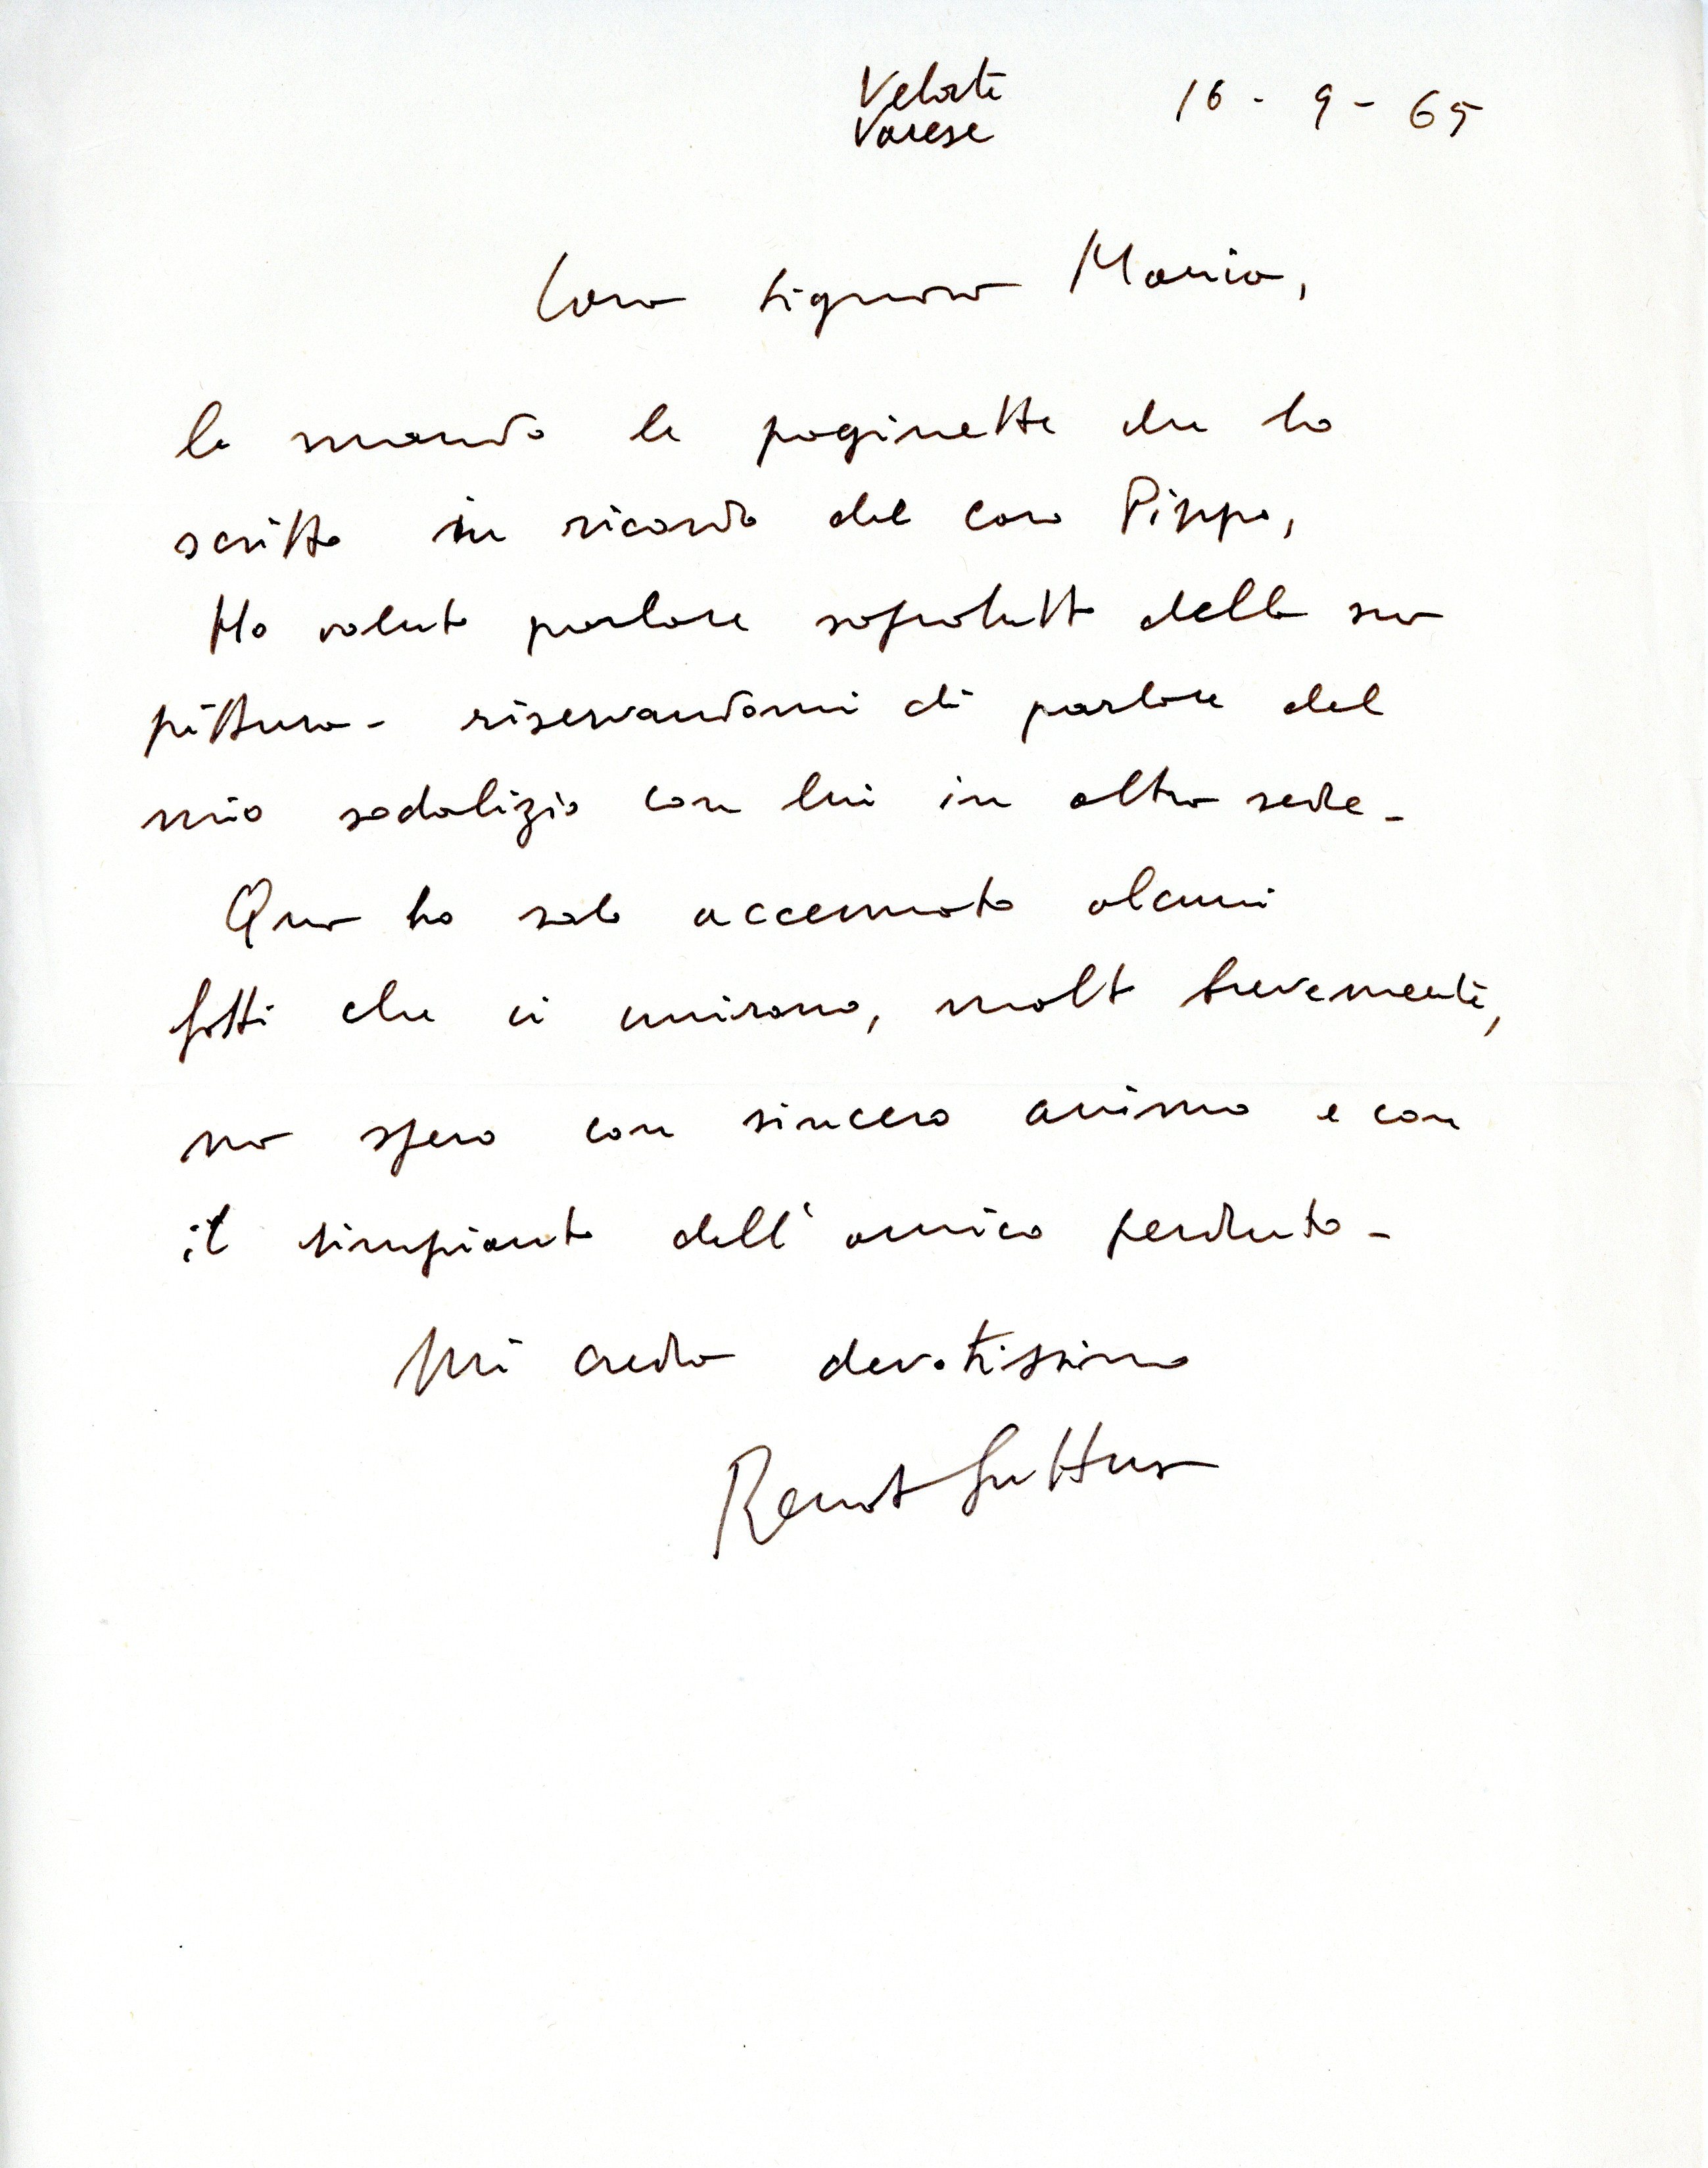 Velate 16 - 9 - 65
Varese
Cara signora Maria,
le mando le paginette che ho
scritto in ricordo del caro Pippo,
Ho voluto parlare sopratutto della sua
pittura - riservandomi di parlare del
mio sodalizio con lui in altra sede -
Qua ho solo accennato alcuni
fatti che ci unirono, molto brevemente,
ma spero con sincero animo e con
il rimpianto dell'amico perduto -
Mi creda devotissimo
Renato Guttuso